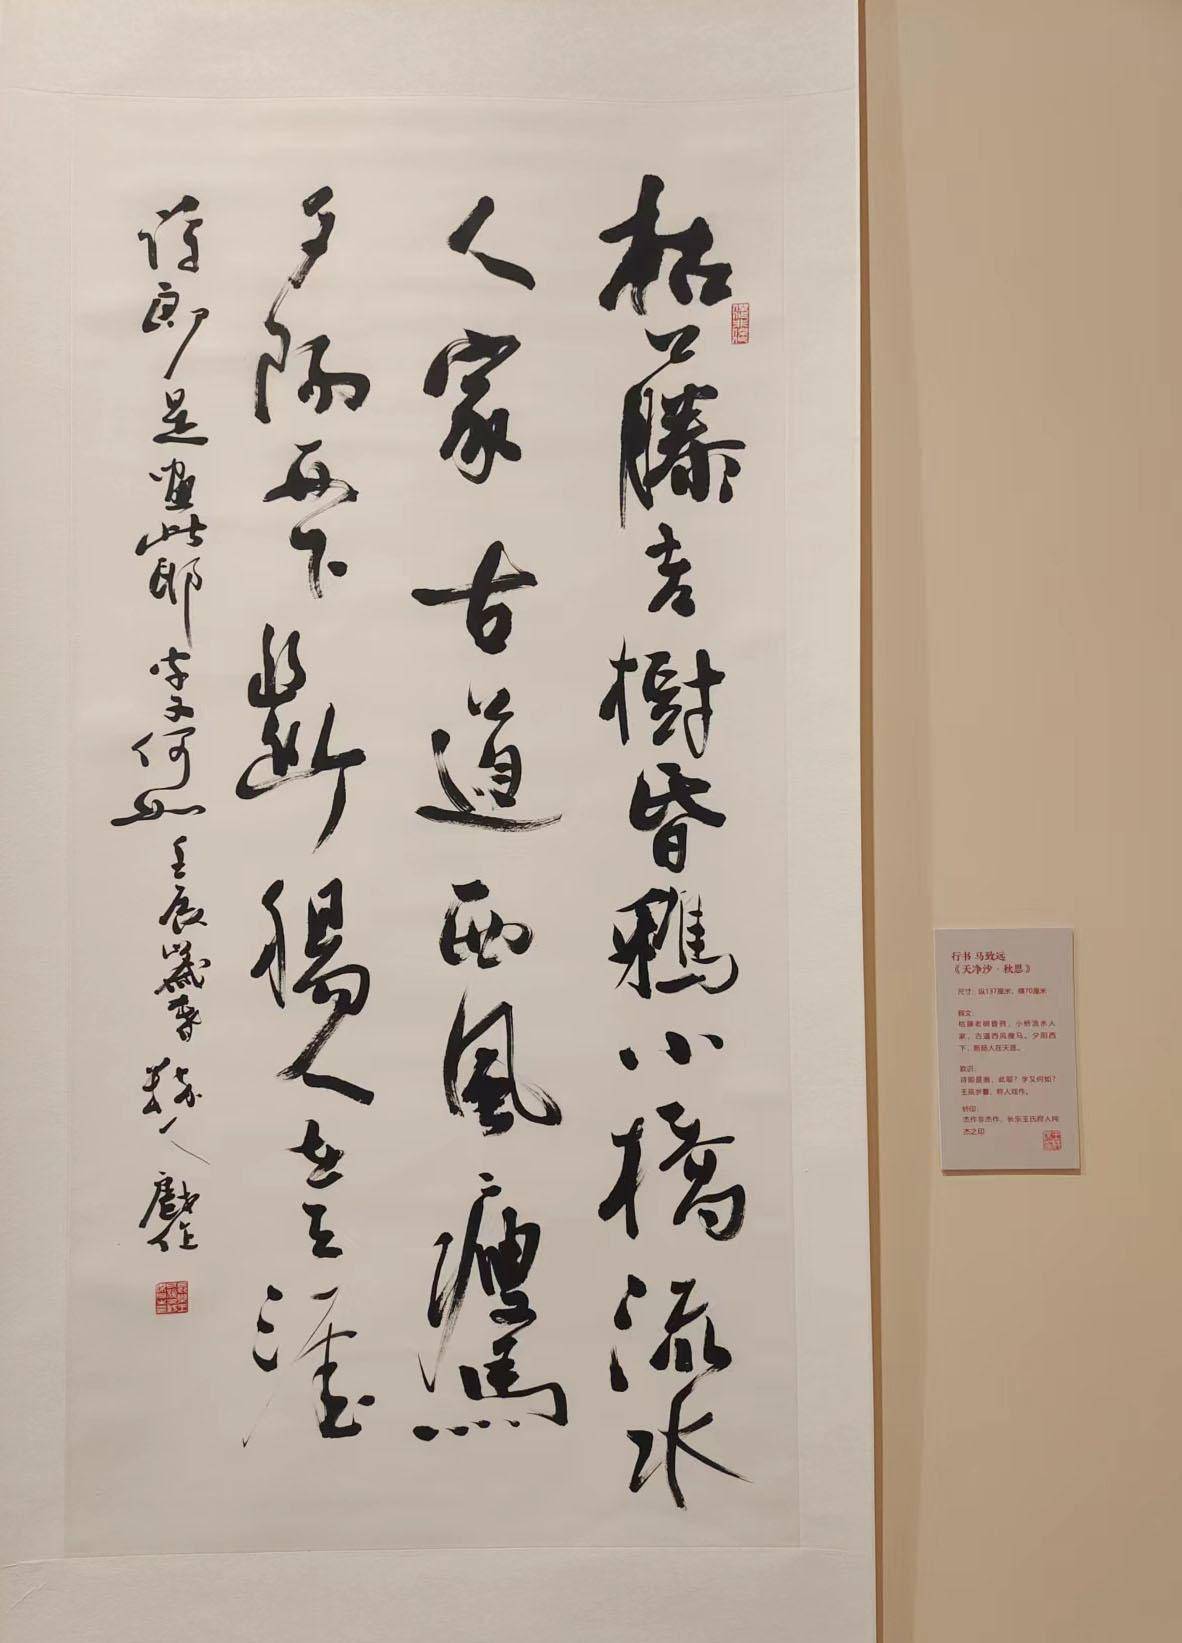 枯藤老樹昏鴉小橋流水
人家古道西風瘦馬
夕陽西下斷腸人在天涯
詩即是畫此耶字又何如壬辰歲暮 人戲作
行书 马致远
《天净沙·秋思》
尺寸：纵137厘米，横70厘米
释文：
枯藤老树昏鸦，小桥流水人
家，古道西风瘦马。夕阳西
下，断肠人在天涯。
款识：
诗即是画，此耶？字又何如？
壬辰岁暮， 人戏作。
钤印：
杰作非杰作、长乐王氏 人 
杰之印